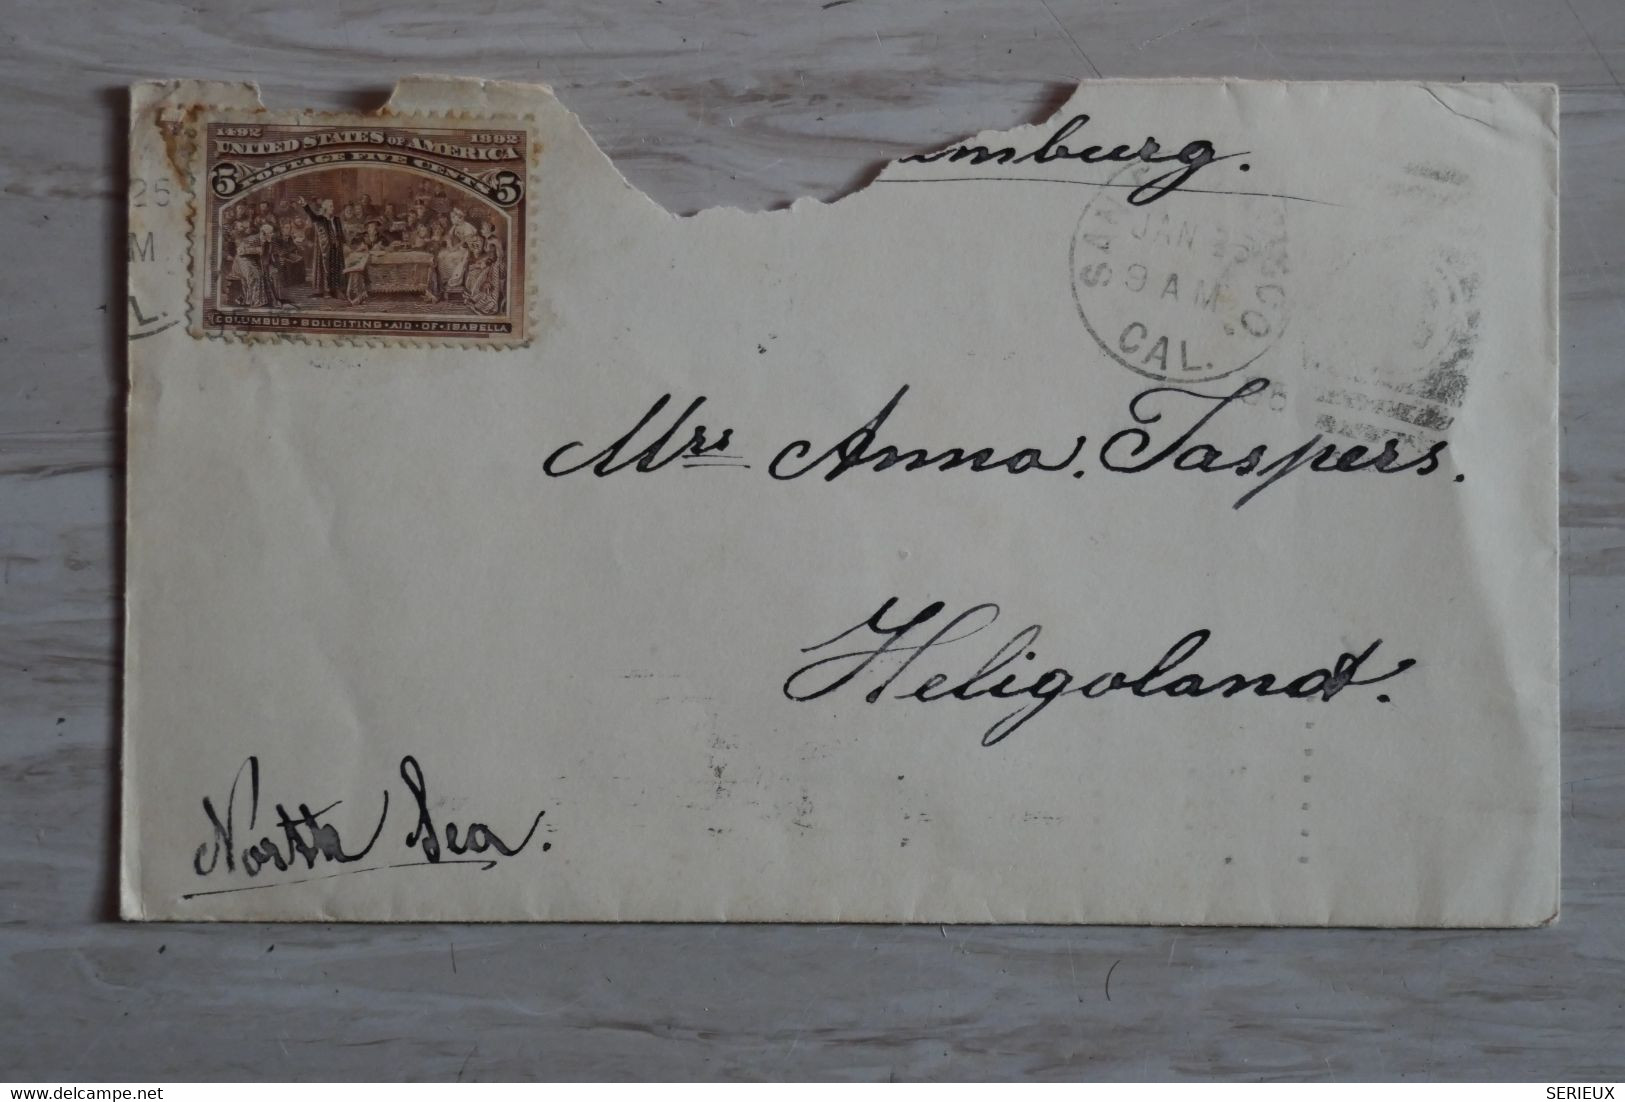 1492 1892
UNITED STATES OF AMERICA
POSTAGE FIVE CENTS
5 5
COLUMBUS · SOLICITING · AID · OF · ISABELLA
25
M
L.
mburg.
JAN 25
9 AM
CAL.
95
Mrs Anna. Jaspers.
Heligoland.
North Sea.
delcampe.net
SERIEUX